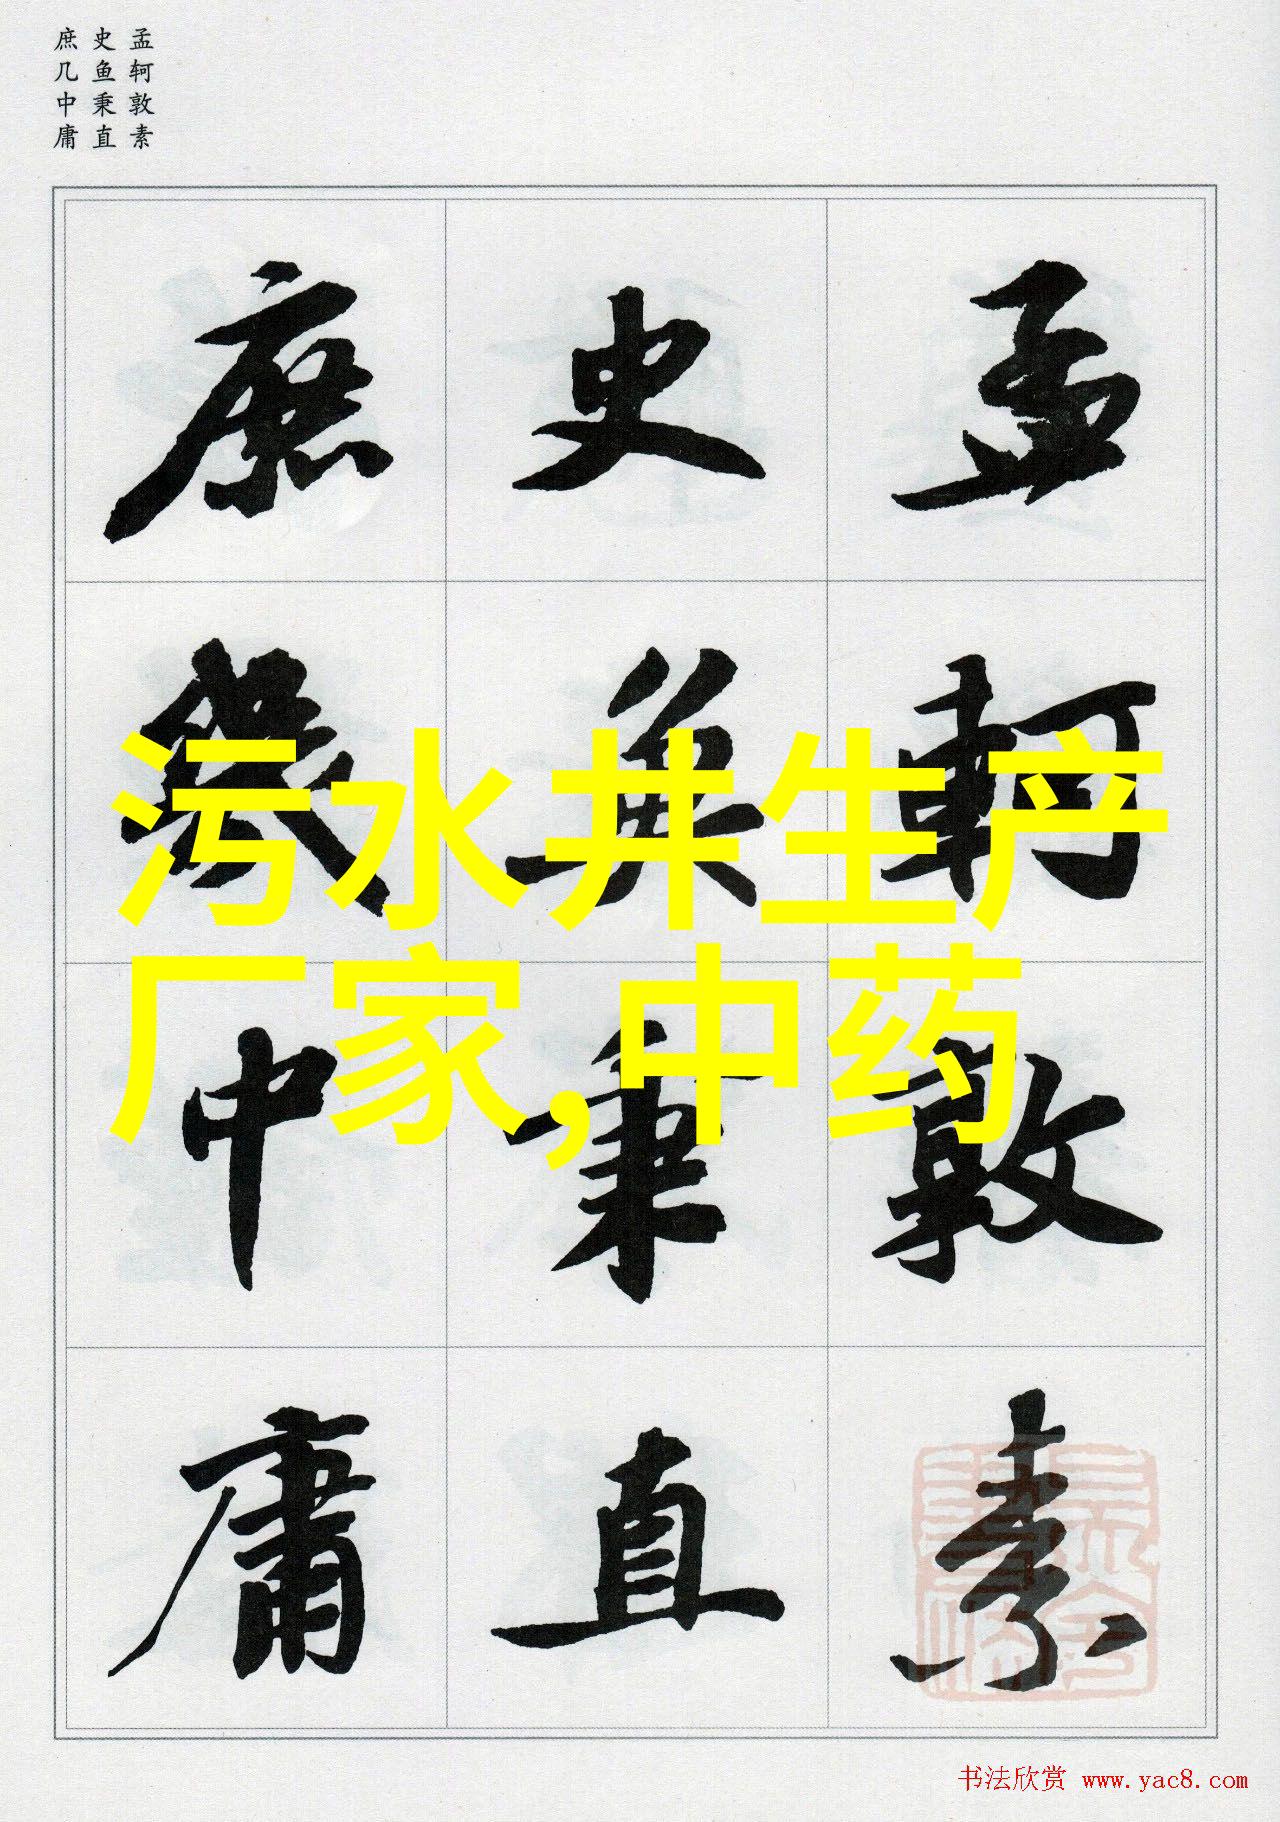 孟轲敦素
史鱼秉直
庶几中庸
孟軻敦素
史魚秉直
庶幾中庸
污水井生产
厂家,中药
书法欣赏 www.yac8.com